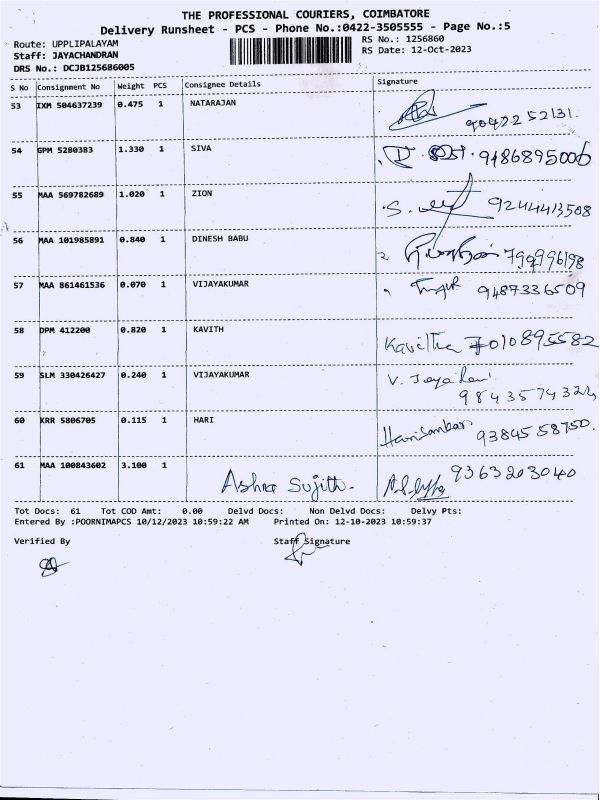 THE PROFESSIONAL COURIERS, COIMBATORE
Delivery Runsheet - PCS - Phone No.:0422-3505555 - Page No.:5
Route: UPPLIPALAYAM
Staff: JAYACHANDRAN
DRS No.: DCJB125686005
RS No.: 1256860
RS Date: 12-Oct-2023
S No Consignment No Weight PCS Consignee Details Signature
53 IXM 504637239 0.475 1 NATARAJAN 90422 52131.
54 GPM 5280383 1.330 1 SIVA 9486895006
55 MAA 569782689 1.020 1 ZION S. 9244413508
56 MAA 101985891 0.840 1 DINESH BABU 799996198
57 MAA 861461536 0.070 1 VIJAYAKUMAR 9487336509
58 DPM 412200 0.820 1 KAVITH Kavitha 7010895582
59 SLM 330426427 0.240 1 VIJAYAKUMAR V. Jayahari
9843574324
60 KRR 5806705 0.115 1 HARI Harisankar 9384558750.
61 MAA 100843602 3.100 1 Ashna Sujith. 9363203040
Tot Docs: 61 Tot COD Amt: 0.00 Delvd Docs: Non Delvd Docs: Delvy Pts:
Entered By :POORNIMAPCS 10/12/2023 10:59:22 AM Printed On: 12-10-2023 10:59:37
Verified By Staff Signature